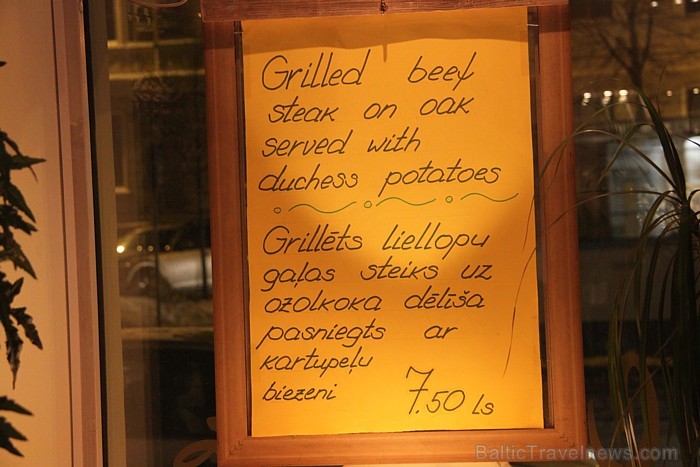 Grilled beef
steak on oak
served with
duchess potatoes
Grillēts liellopu
gaļas steiks uz
ozolkoka dēlīša
pasniegts ar
kartupeļu
biezeni
7.50 Ls
BalticTravelnews.com